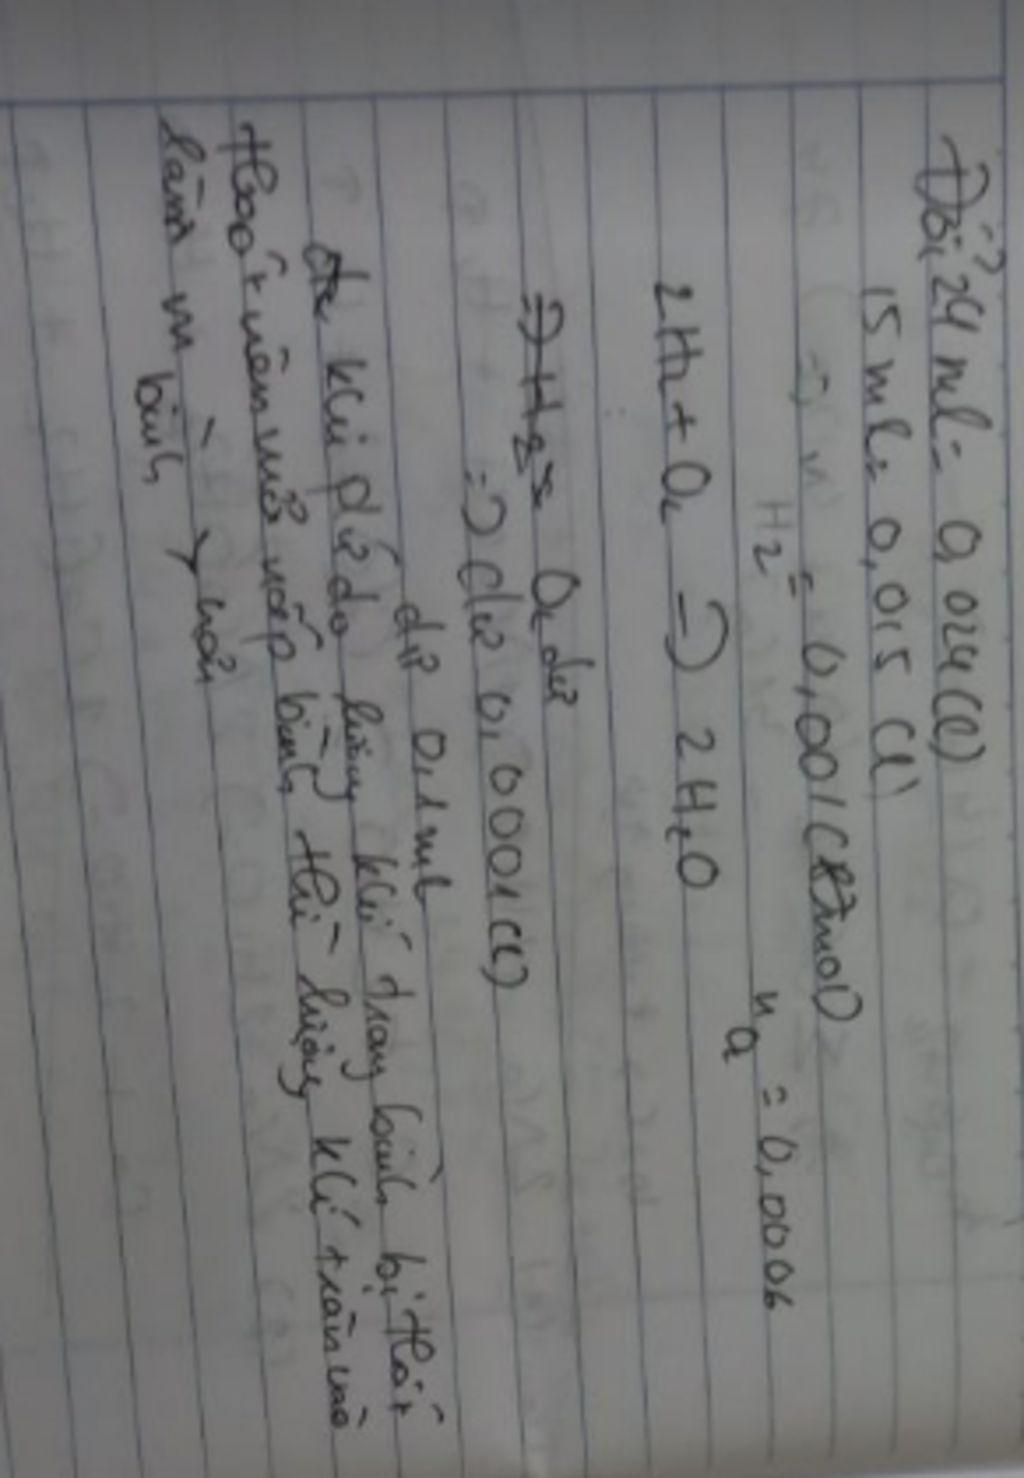 Đổi 24 ml = 0,024 (l)
15 ml = 0,015 (l)
H2 = 0,001 (mol) n O2 = 0,0006
2H2 + O2 → 2H2O
=> H2 O2 dư
=> dư 0,0001 (l)
dư 0,1 ml
khi pư do lượng khí trong bình bị thoát
thoát nên mở nắp bình thì lượng khí tràn vào
làm bình nổ